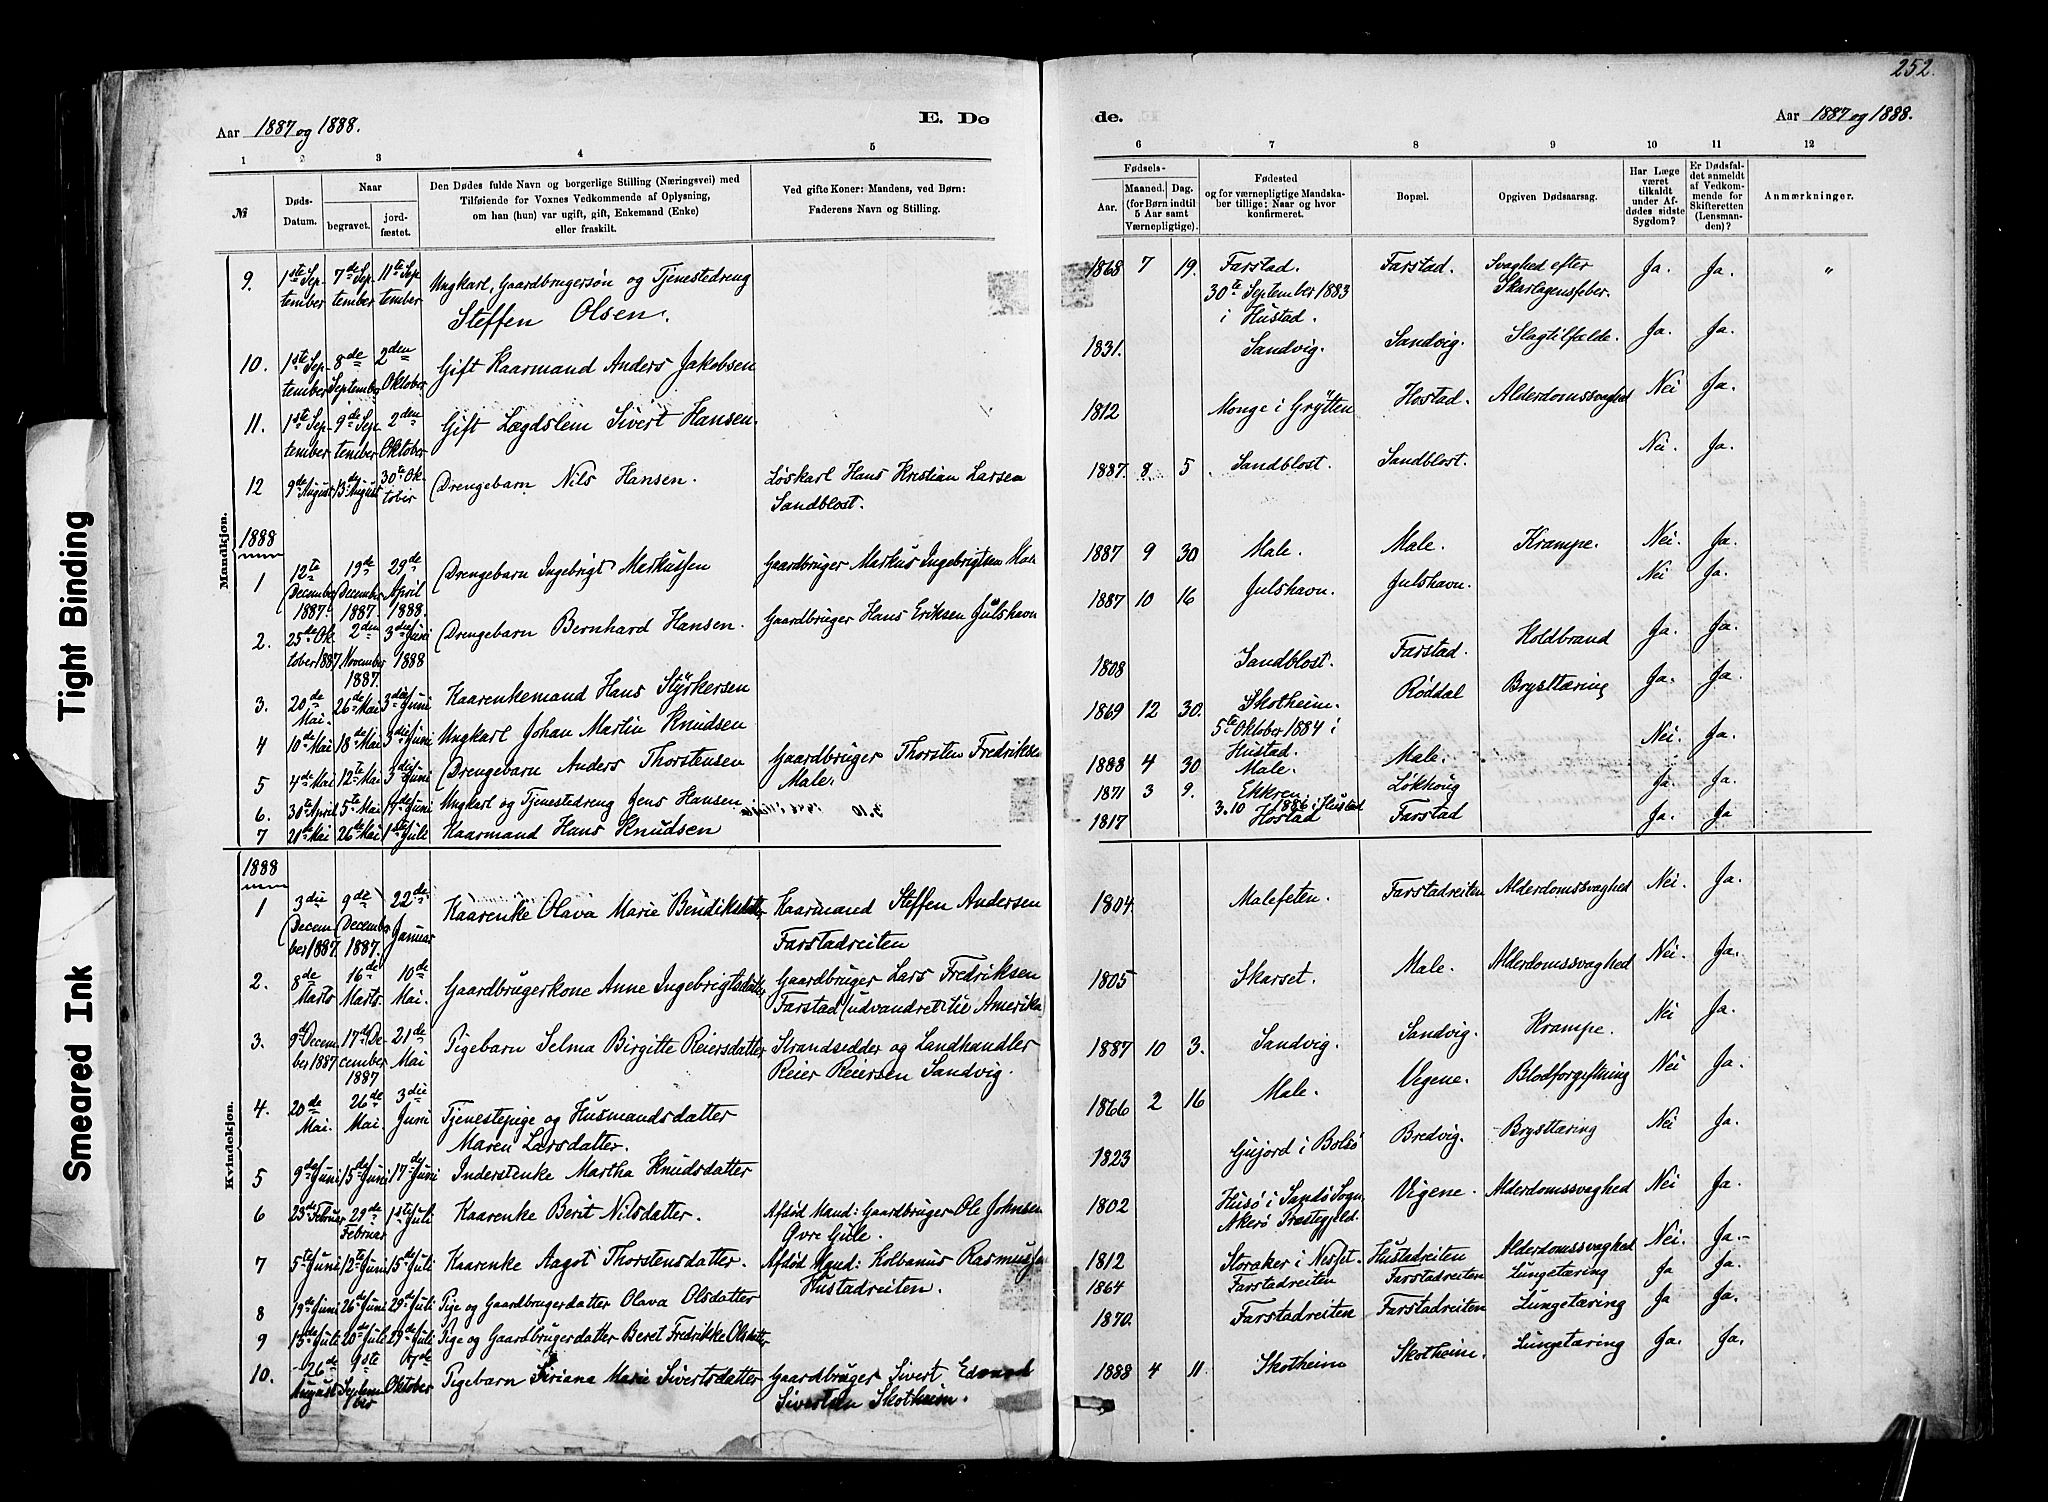 252.
Aar 1887 og 1888.
E. Dø
de.
Aar 1887 og 1888.
1 2 3 4 5
6 7 8 9 10 11 12
№
Døds-
Datum.
Naar
begravet.
jord-
fæstet.
Den Dødes fulde Navn og borgerlige Stilling (Næringsvei) med
Tilføiende for Voxnes Vedkommende af Oplysning,
om han (hun) var ugift, gift, Enkemand (Enke)
eller fraskilt.
Ved gifte Koner: Mandens, ved Børn:
Faderens Navn og Stilling.
Fødsels-
Aar.
Maaned. Dag.
(for Børn indtil
5 Aar samt
Værnepligtige).
Fødested
og for værnepligtige Mandska-
ber tillige: Naar og hvor
konfirmeret.
Bopæl.
Opgiven Dødsaarsag.
Har Læge
været
tilkaldt
under Af-
dødes sidste
Sygdom?
Er Dødsfal-
det anmeldt
af Vedkom-
mende for
Skifteretten
(Lensman-
den)?
Anmærkninger.
Mandkjøn.
9. 1ste Sep- 7de Sep- 11te Sep-
tember tember tember
Ungkarl, Gaardbrugersøn og Tjenestedreng
Steffen Olsen.
1868 7 19. Farstad. Farstad. Svaghed efter Ja. Ja. "
30te September 1883 Skarlagensfeber.
i Hustad.
10. 1ste Sep- 8de 2den
tember September Oktober
Gift Kaarmand Anders Jakobsen
1831. Sandvig. Sandvig. Slagtilfælde. Ja. Ja.
11. 1ste Sep- 9de Sep- 2den
tember tember Oktober
Gift Lægdslem Sivert Hansen.
1812 Monge i Grytten Hostad. Alderdomssvaghed Nei Ja.
12 9de August 13de August 30te Ok-
tober
Drengebarn Nils Hansen.
Løskarl Hans Kristian Larsen
Sandblost.
1887. 8 5 Sandblost. Sandblost. Nei. Ja.
1888
1 12te 19de 29de
December December April
1887. 1887 1888.
Drengebarn Ingebrigt Markussen
Gaardbruger Markus Ingebrigtsen
1887 9 30 Male. Male. Krampe. Nei. Ja.
2. 25de Ok- 2den 3die Juni
tober 1887 November 1888
1887.
Drengebarn Bernhard Hansen.
Gaardbruger Hans Eriksen Julshavn
1887 10 16 Julshavn. Julshavn. Nei Ja.
3. 20de 26de Mai 3die Juni
Mai.
Kaarenkemand Hans Styrkersen
1808 Sandblost. Farstad. Koldbrand Ja. Ja.
4 10de Mai 18de Mai 3die Juni
Ungkarl Johan Martin Knudsen
1869 12 30. Skotheim. Røddal Brysttæring Ja. Ja.
5te Oktober 1884 i
Hustad.
5 4de Mai 12te Mai 3die Juni
Drengebarn Anders Thorstensen
Gaardbruger Thorsten Fredriksen
Male.
1888 4 30 Male. Male. Nei. Ja.
6. 30te April 5te Mai Juni
Ungkarl og Tjenestedreng Jens Hansen
1871 3 9. Ekkren. Løkhoug Ja. Ja.
3.10 1886 i Hustad
7 21de Mai 26de Mai 1ste Juli
Kaarmand Hans Knudsen
1817 Hostad Farstad Ja. Ja
Kvindekjøn.
1888
1 3die 9de 22de
Decem- December Januar
ber 1887 1887.
Kaarenke Olava Marie Bendiksdatter
Kaarmand Steffen Andersen
Farstadreiten
1804 Malefeten. Farstadreiten Alderdomssvaghed Nei. Ja.
2. 8de 16de 10de
Marts Marts. Mai.
Gaardbrugerkone Anne Ingebrigtsdatter
Gaardbruger Lars Fredriksen
Farstad (udvandret til Amerika
1805 Skarset. Male. Alderdomssvaghed Nei. Ja.
3. 9de Decem- 17de De- 21de
ber 1887 cember Mai
1887
Pigebarn Selma Birgitte Reiersdatter
Strandsedder og Landhandler
Reier Reiersen Sandvig.
1887 10 3. Sandvig. Sandvig. Krampe. Nei Ja.
4. 20de 26de 3die
Mai. Mai. Juni
Tjenestepige og Husmandsdatter
Maren Larsdatter.
1866 2 16 Male. Vegene. Blodforgiftning Nei Ja.
5 9de Juni 15de Juni 17de Juni
Inderstenke Martha Knudsdatter
1823 Gujord i Bolsø Bredvig. Brysttæring Nei Ja.
6 23de Februar 29de 1ste Juli
Februar
Kaarenke Berit Nilsdatter.
Afdød Mand: Gaardbruger Ole Johnsen
Øvre Gule.
1802 Husø i Sandø Sogn, Vigene. Alderdomssvaghed Nei Ja.
Akerø Præstegjeld.
7 5te Juni 12te Juni 15de Juli
Kaarenke Aagot Thorstensdatter.
Afdød Mand: Kolbanus Rasmussen
Hustadreiten.
1812 Storaker i Nesset. Hustadreiten Alderdomssvaghed Nei. Ja.
8 19de Juni 26de Juni 29de Juli
Pige og Gaardbrugerdatter Olava Olsdatter
1864 Farstadreiten Farstadreiten Lungetæring Ja Ja.
9 15de Juli 20de Juli 29de Juli
Pige og Gaardbrugerdatter Beret Fredrikke Olsdatter
1870. Farstadreiten Farstadreiten Lungetæring Ja Ja.
10. 26de 9ste 7de
August Septem- Oktober
ber
Pigebarn Siriana Marie Sivertsdatter
Gaardbruger Sivert Edvard
Sivertsen Skotheim.
1888 4 11. Skotheim Skotheim. Lungetæring Ja. Ja.
Tight Binding
Smeared Ink